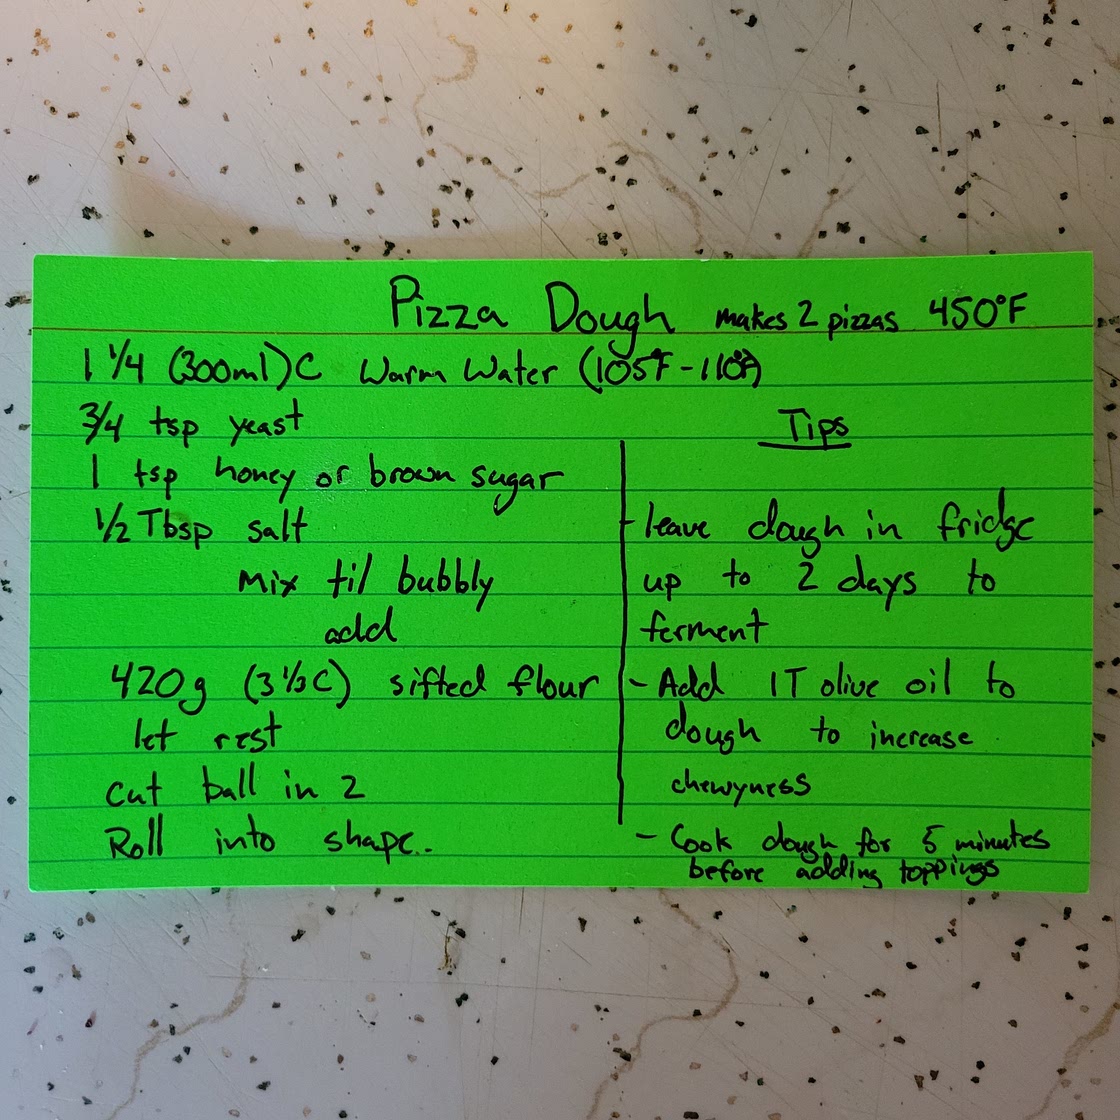 Pizza Dough makes 2 pizzas 450°F
1 1/4 (300ml) C Warm Water (105°F-110°F)
3/4 tsp yeast
1 tsp honey or brown sugar
1/2 Tbsp salt
Mix til bubbly
add
420g (3 1/3 C) sifted flour
let rest
Cut ball in 2
Roll into shape..
Tips
- leave dough in fridge
up to 2 days to
ferment
- Add 1T olive oil to
dough to increase
chewyness
- Cook dough for 5 minutes
before adding toppings